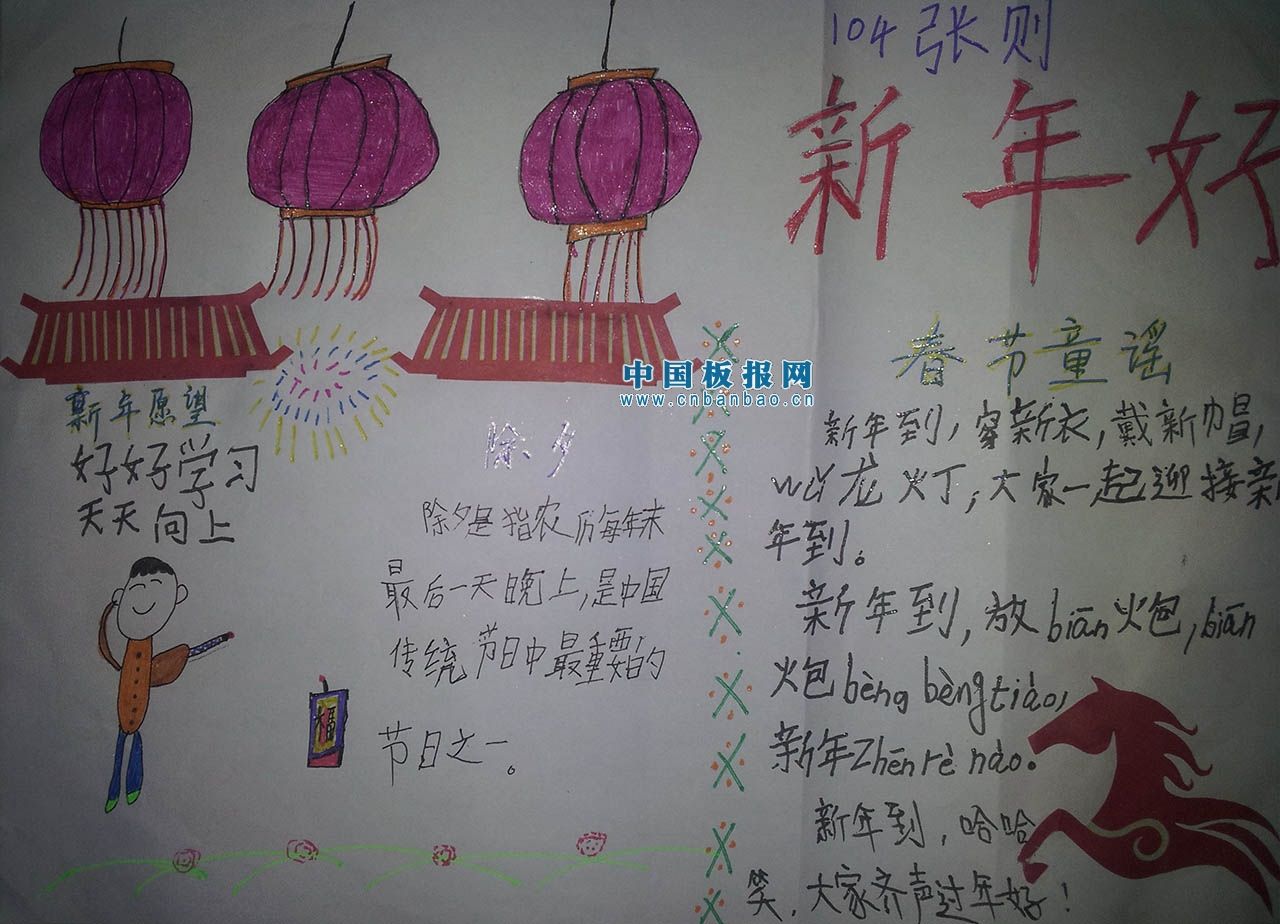 104 张则
新年好
中国板报网
www.cnbanbao.cn
新年愿望
好好学习
天天向上
除夕
除夕是指农历每年末
最后一天晚上,是中国
传统节日中最重要的
节日之一。
福
春节童谣
新年到,穿新衣,戴新帽,
wǔ龙灯,大家一起迎接新
年到。
新年到,放biān火包,biān
火包bèng bèng tiào,
新年Zhēn rè nào.
新年到,哈哈
笑,大家齐声过年好!